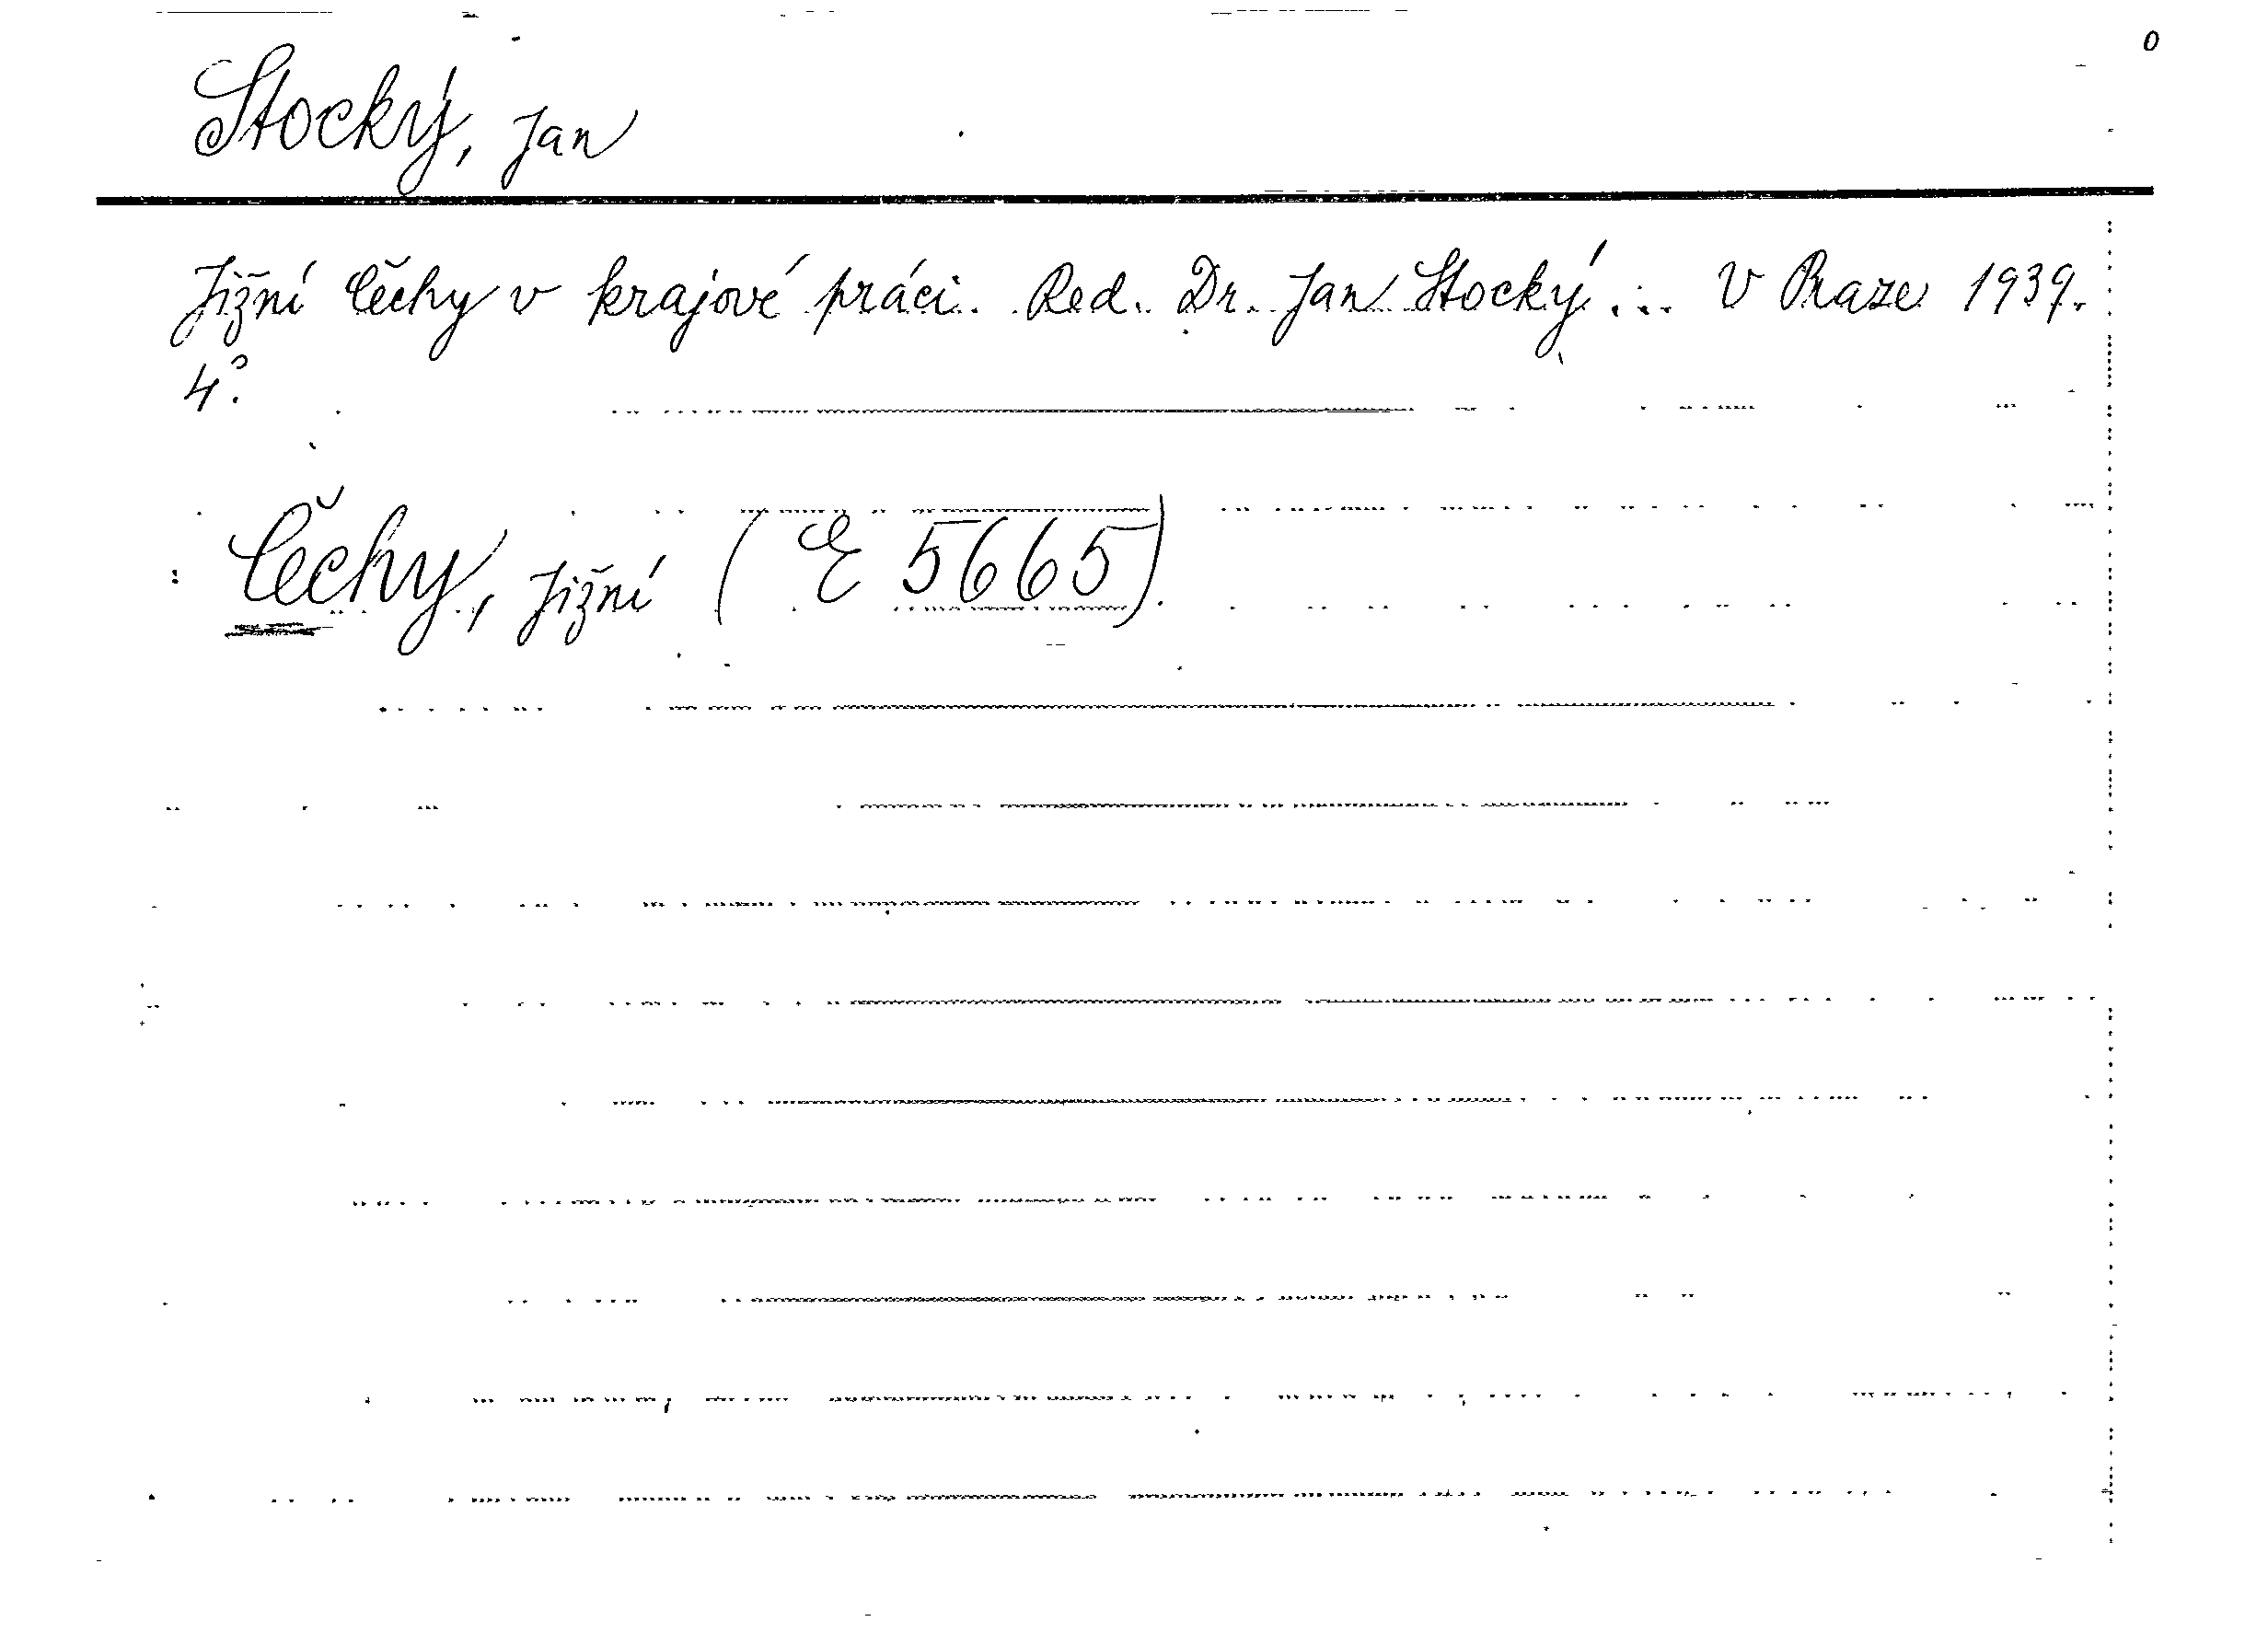 0
Stocký, Jan
Jižní Čechy v krajové práci. Red. Dr. Jan Stocký ... V Praze 1939.
4°.
Čechy, Jižní (E 5665).